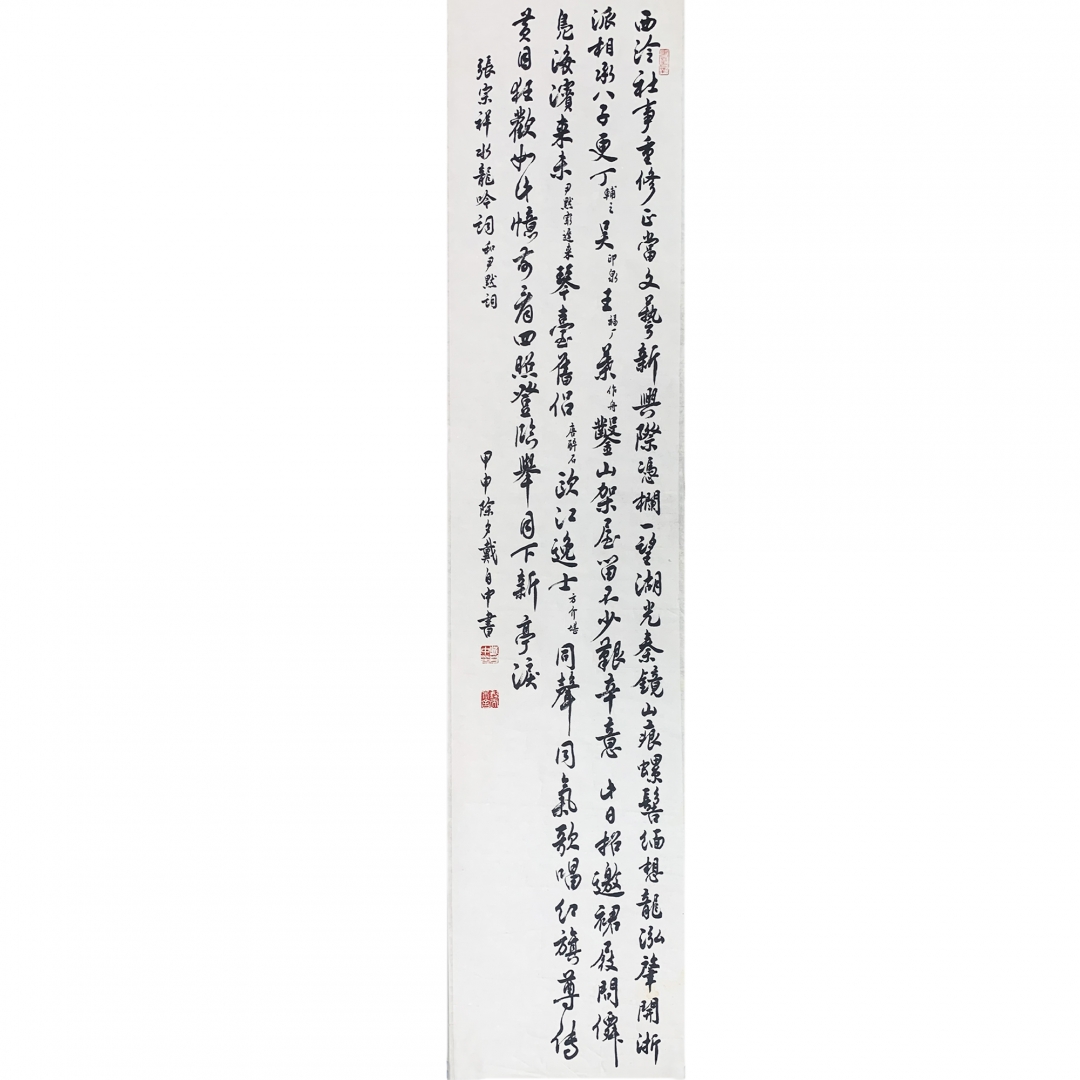 西泠社事重修正當文藝新興際憑欄一望湖光秦鏡山痕螺髻緬想龍泓肇開浙
派相承八子更丁輔之吳印泉王福厂葉作舟鑿山架屋留不少艱辛意此日招邀裙屐問僊
鳧海濱來未尹默家造來琴臺舊侶唐醉石歐江逸士方介堪同聲同氣歌唱紅旗尊傳
黃目狂歡如此憶前看四照登臨舉目下新亭淚
張宗祥水龍吟詞和尹默詞
甲申除夕戴自中書